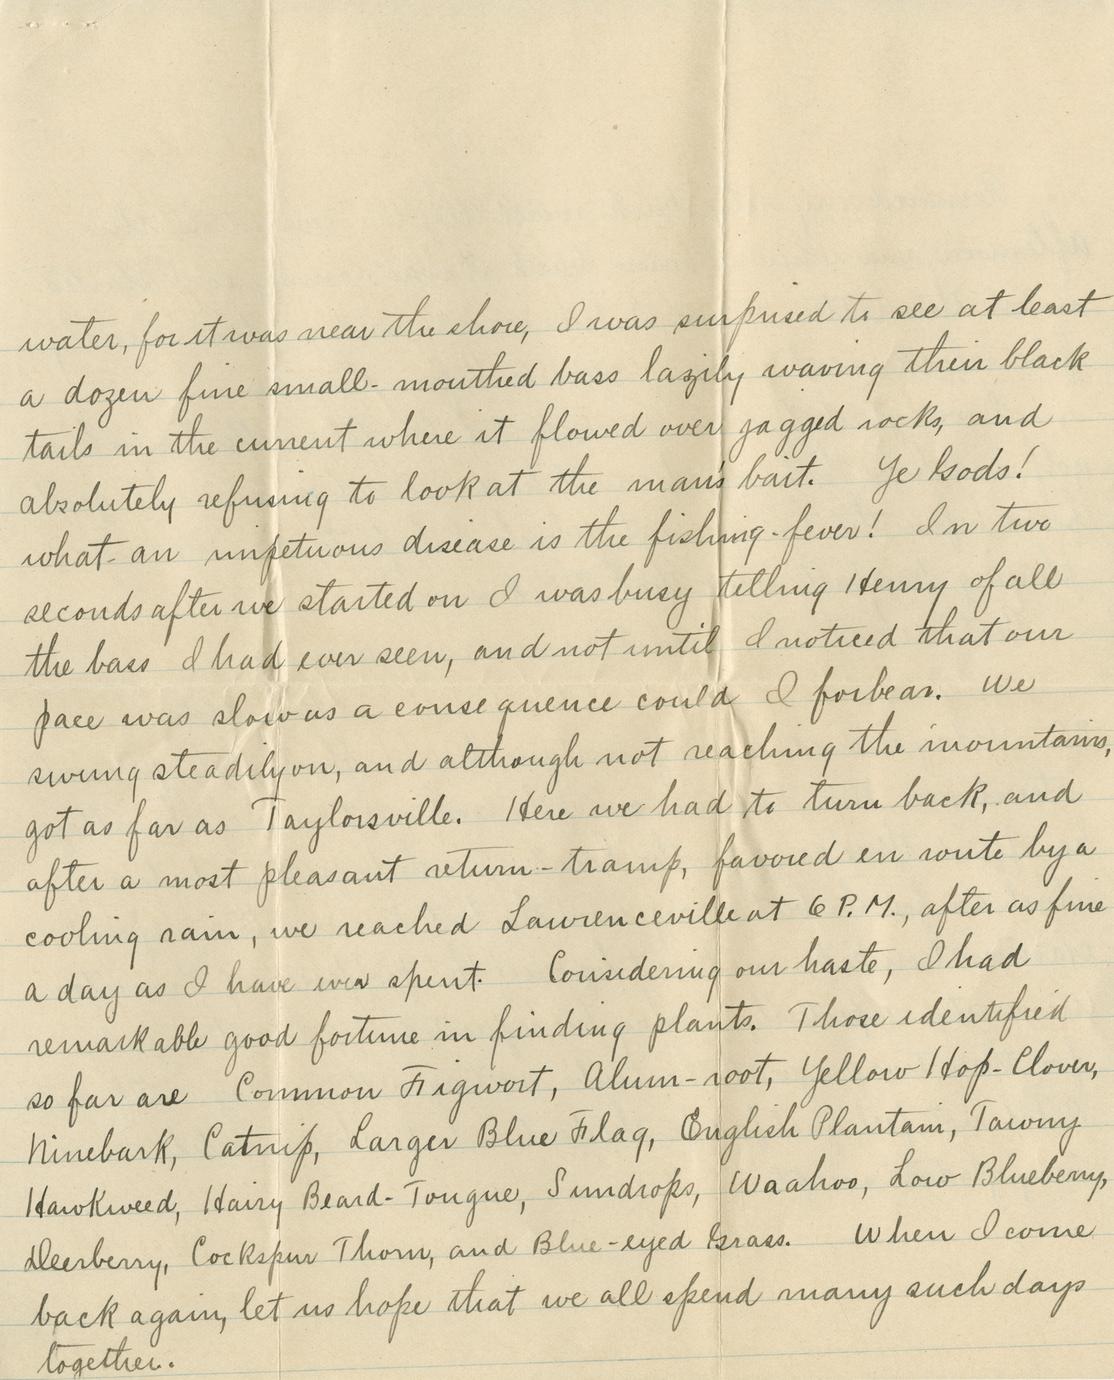 water, for it was near the shore, I was surprised to see at least
a dozen fine small-mouthed bass lazily waving their black
tails in the current where it flowed over jagged rocks, and
absolutely refusing to look at the man's bait. Ye Gods!
what an impetuous disease is the fishing-fever! In two
seconds after we started on I was busy telling Henry of all
the bass I had ever seen, and not until I noticed that our
pace was slow as a consequence could I forbear. We
swung steadily on, and although not reaching the mountains,
got as far as Taylorsville. Here we had to turn back, and
after a most pleasant return-tramp, favored en route by a
cooling rain, we reached Lawrenceville at 6 P.M., after as fine
a day as I have ever spent. Considering our haste, I had
remarkable good fortune in finding plants. Those identified
so far are Common Figwort, Alum-root, Yellow Hop-Clover,
Ninebark, Catnip, Larger Blue Flag, English Plantain, Tawny
Hawkweed, Hairy Beard-Tongue, Sundrops, Waahoo, Low Blueberry,
Deerberry, Cockspur Thorn, and Blue-eyed Grass. When I come
back again, let us hope that we all spend many such days
together.